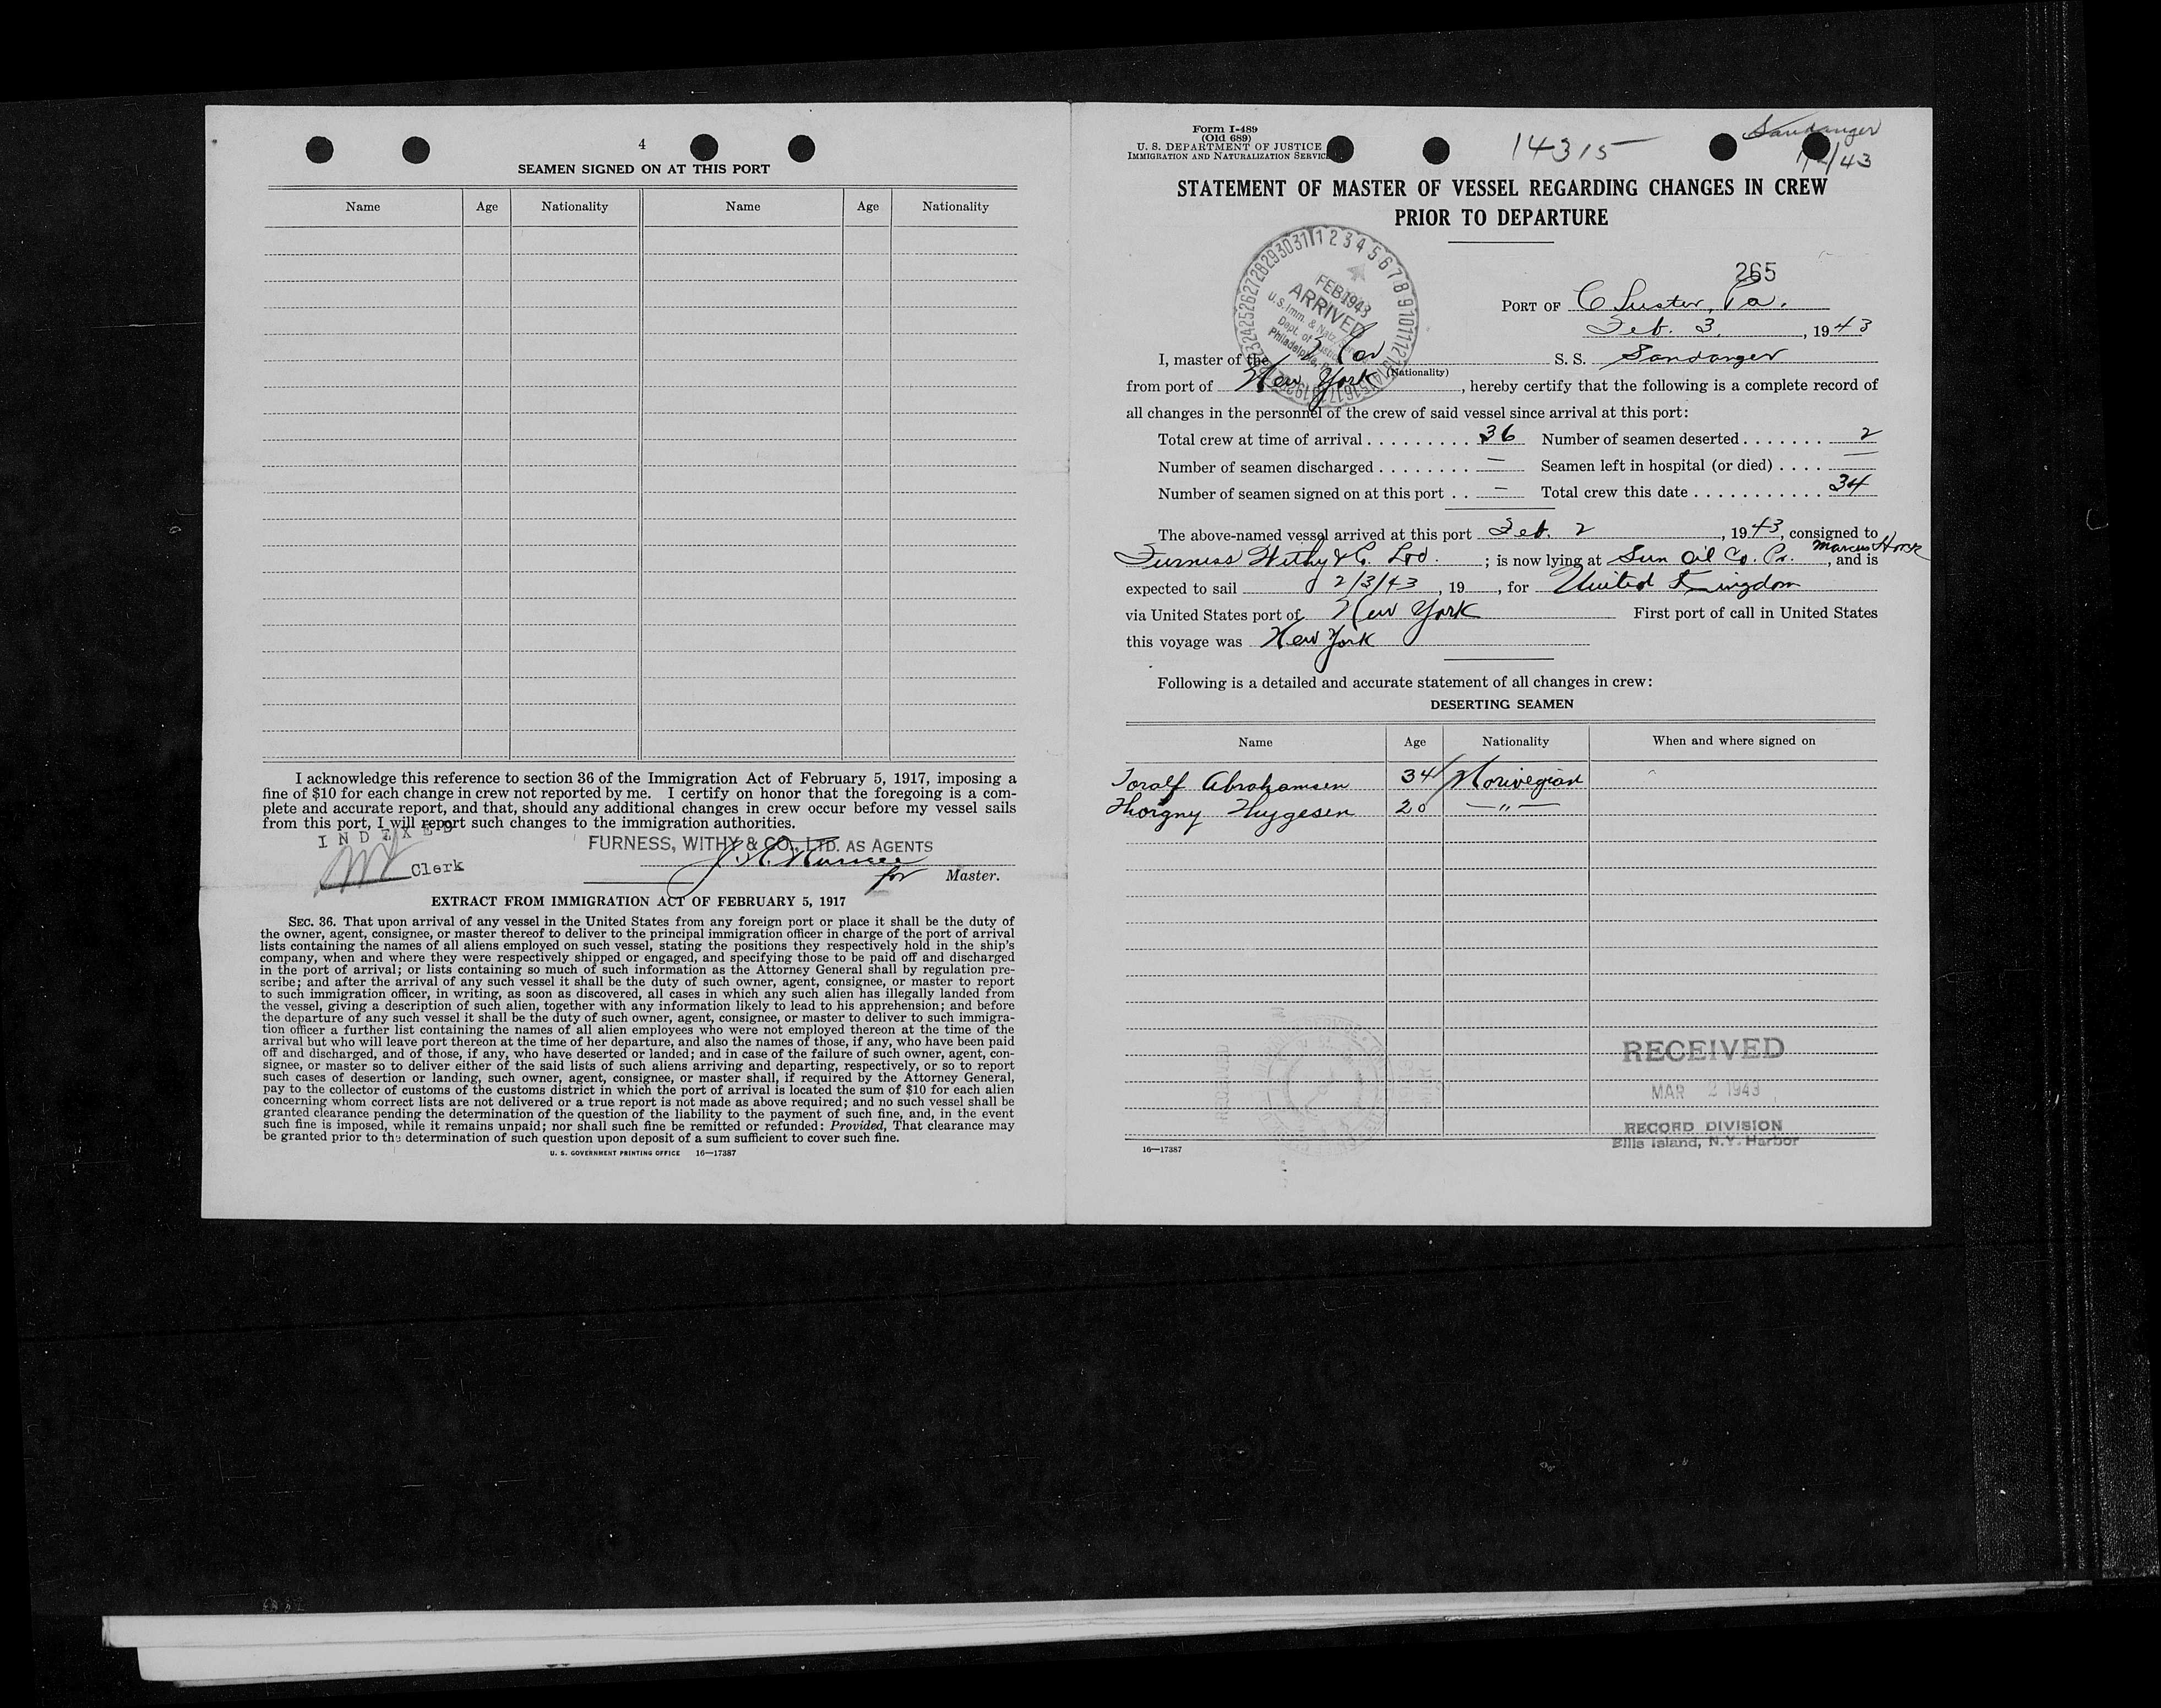 4
SEAMEN SIGNED ON AT THIS PORT
Name Age Nationality Name Age Nationality
I acknowledge this reference to section 36 of the Immigration Act of February 5, 1917, imposing a
fine of $10 for each change in crew not reported by me. I certify on honor that the foregoing is a com-
plete and accurate report, and that, should any additional changes in crew occur before my vessel sails
from this port, I will report such changes to the immigration authorities.
INDEXED
Clerk
FURNESS, WITHY & CO., LTD. AS AGENTS
for Master.
EXTRACT FROM IMMIGRATION ACT OF FEBRUARY 5, 1917
SEC. 36. That upon arrival of any vessel in the United States from any foreign port or place it shall be the duty of
the owner, agent, consignee, or master thereof to deliver to the principal immigration officer in charge of the port of arrival
lists containing the names of all aliens employed on such vessel, stating the positions they respectively hold in the ship's
company, when and where they were respectively shipped or engaged, and specifying those to be paid off and discharged
in the port of arrival; or lists containing so much of such information as the Attorney General shall by regulation pre-
scribe; and after the arrival of any such vessel it shall be the duty of such owner, agent, consignee, or master to report
to such immigration officer, in writing, as soon as discovered, all cases in which any such alien has illegally landed from
the vessel, giving a description of such alien, together with any information likely to lead to his apprehension; and before
the departure of any such vessel it shall be the duty of such owner, agent, consignee, or master to deliver to such immigra-
tion officer a further list containing the names of all alien employees who were not employed thereon at the time of the
arrival but who will leave port thereon at the time of her departure, and also the names of those, if any, who have been paid
off and discharged, and of those, if any, who have deserted or landed; and in case of the failure of such owner, agent, con-
signee, or master so to deliver either of the said lists of such aliens arriving and departing, respectively, or so to report
such cases of desertion or landing, such owner, agent, consignee, or master shall, if required by the Attorney General,
pay to the collector of customs of the customs district in which the port of arrival is located the sum of $10 for each alien
concerning whom correct lists are not delivered or a true report is not made as above required; and no such vessel shall be
granted clearance pending the determination of the question of the liability to the payment of such fine, and, in the event
such fine is imposed, while it remains unpaid; nor shall such fine be remitted or refunded: Provided, That clearance may
be granted prior to the determination of such question upon deposit of a sum sufficient to cover such fine.
U. S. GOVERNMENT PRINTING OFFICE 16—17387
Form I-489
(Old 689)
U. S. DEPARTMENT OF JUSTICE
IMMIGRATION AND NATURALIZATION SERVICE
14315
Sandanger
/43
STATEMENT OF MASTER OF VESSEL REGARDING CHANGES IN CREW
PRIOR TO DEPARTURE
FEB 1943
ARRIVED
U.S. Imm. & Natz. Service
Dept. of Justice
Philadelphia,
265
PORT OF Chester, Pa.
Feb. 3, 1943
I, master of the Nor S. S. Sandanger
(Nationality)
from port of New York, hereby certify that the following is a complete record of
all changes in the personnel of the crew of said vessel since arrival at this port:
Total crew at time of arrival 36 Number of seamen deserted 2
Number of seamen discharged — Seamen left in hospital (or died) —
Number of seamen signed on at this port — Total crew this date 34
The above-named vessel arrived at this port Feb. 2, 1943, consigned to
Furness Withy & Co. Ltd.; is now lying at Sun Oil Co. Pr. Marcus Hook, and is
expected to sail 2/3/43, 19 , for United Kingdom
via United States port of New York First port of call in United States
this voyage was New York
Following is a detailed and accurate statement of all changes in crew:
DESERTING SEAMEN
Name Age Nationality When and where signed on
Toralf Abrahamsen 34 Norwegian
Thorgny Thygesen 20 —"—
RECEIVED
MAR 2 1943
RECORD DIVISION
Ellis Island, N.Y. Harbor
16—17387